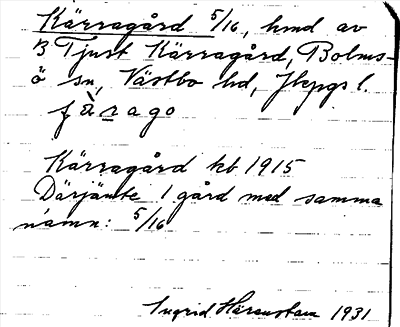 Kärragård 5/16, hmd av
B Tjust Kärragård, Bolms-
ö sn, Västbo hd, Jkpgs l.
fà̈rago
Kärragård kb 1915
Därjämte 1 gård med samma
namn: 5/16
Ingrid 1931